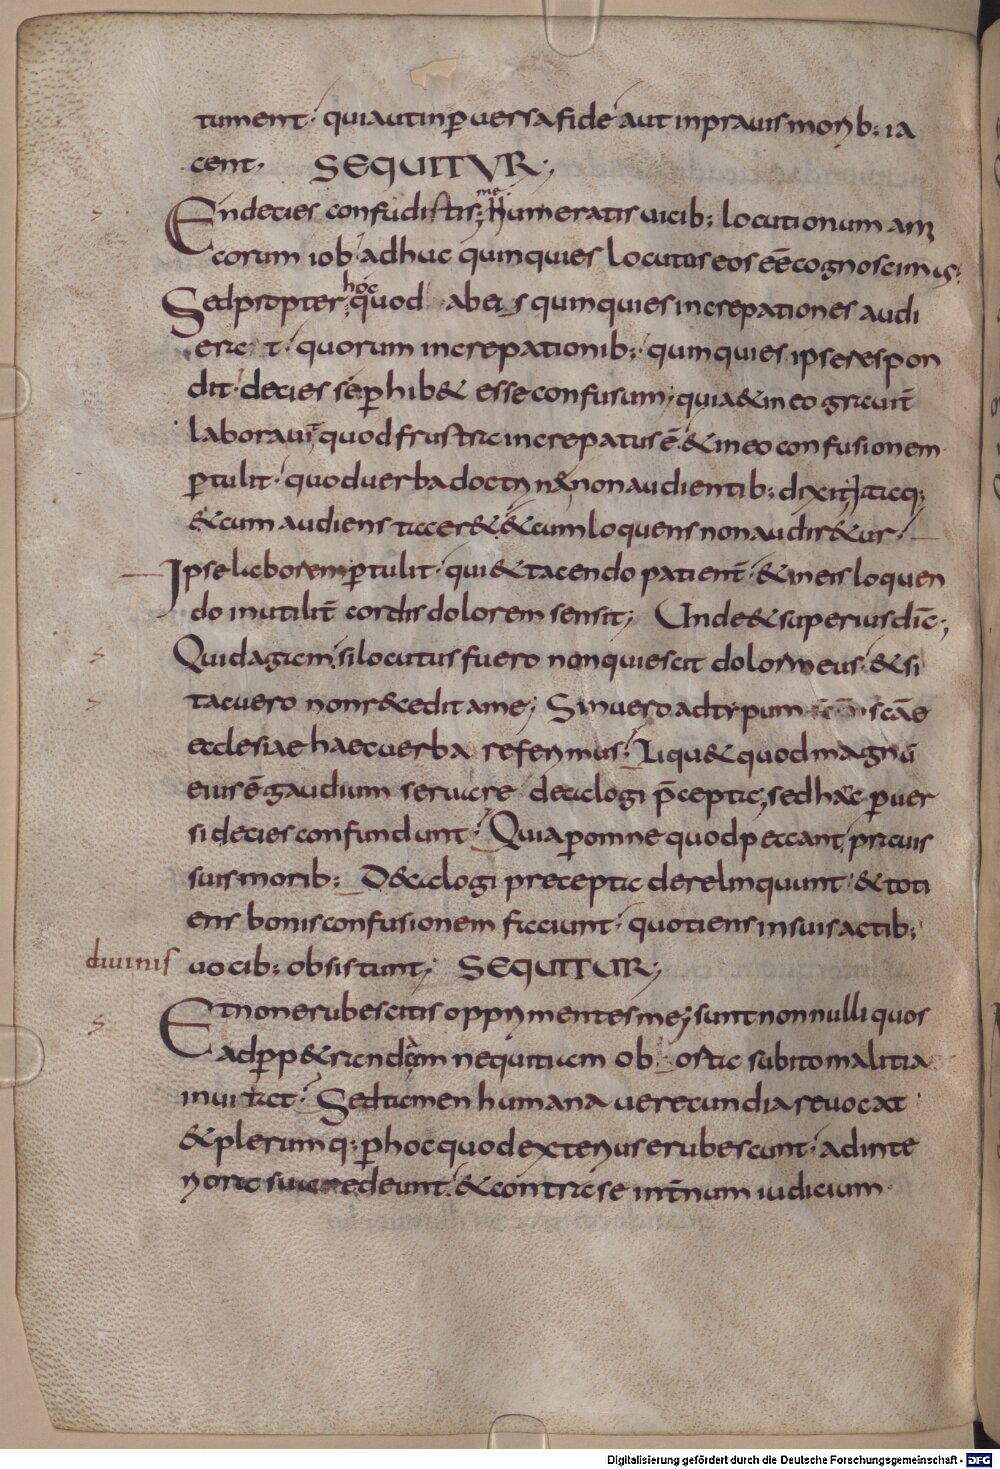 tument· quiautinꝑuersafide aut inprauis morib; ia
cent· SEQUITVR;
En decies confudistis me; Numeratis uicib; locutionum am
corum iob adhuc quinquies locutus eos eēcognoscimus;
Sedpropter hoc quod ab eis quinquies increpationes audi
erat· quorum increpationib; quinquies ipse respon
dit· decies seꝑhib& esse confusum; quia&ineo grauit̄
laborauit quodfrustra increpatus ē &ineo confusionem
ꝑtulit· quoduerbadoctrin& nonaudientib; dixit; Itaq;
&cum audiens tacer& &cumloquens nonaudir&ur·
Ipse laboremꝑtulit· qui&tacendo patient̄ &ineis loquen
do inutilit̄ cordis dolorem sensit; Unde&superius dic̄;
Quidagam, silocutus fuero nonquiescit dolor meus· &si
tacuero nonr&cedit ame; Sinuero adtypum scāe
ecclesiae haecuerba referimus· Liqu&quodmagnū
eius ē gaudium seruare decalogi p̄cepta; sed hāc ꝑuer
si decies confundunt· Quiaꝑomne quodpeccant prauis
suis morib; D&calogi precepta derelinquunt· &toti
ens bonis confusionem faciunt· quotiens insuis actib;
divinis uocib; obsistunt; SEQUITUR;
Etnonerubescitis opprimentesme; sunt nonnulli quos
adꝑp&randam nequitiam ob ostia subito malitia
inuitat· Sedtamen humana uerecundia reuocat
&plerumq; ꝑhocquodexterius erubescunt· adinte
riora sua redeunt· &contra se int̄num iudicium
Digitalisierung gefördert durch die Deutsche Forschungsgemeinschaft - DFG